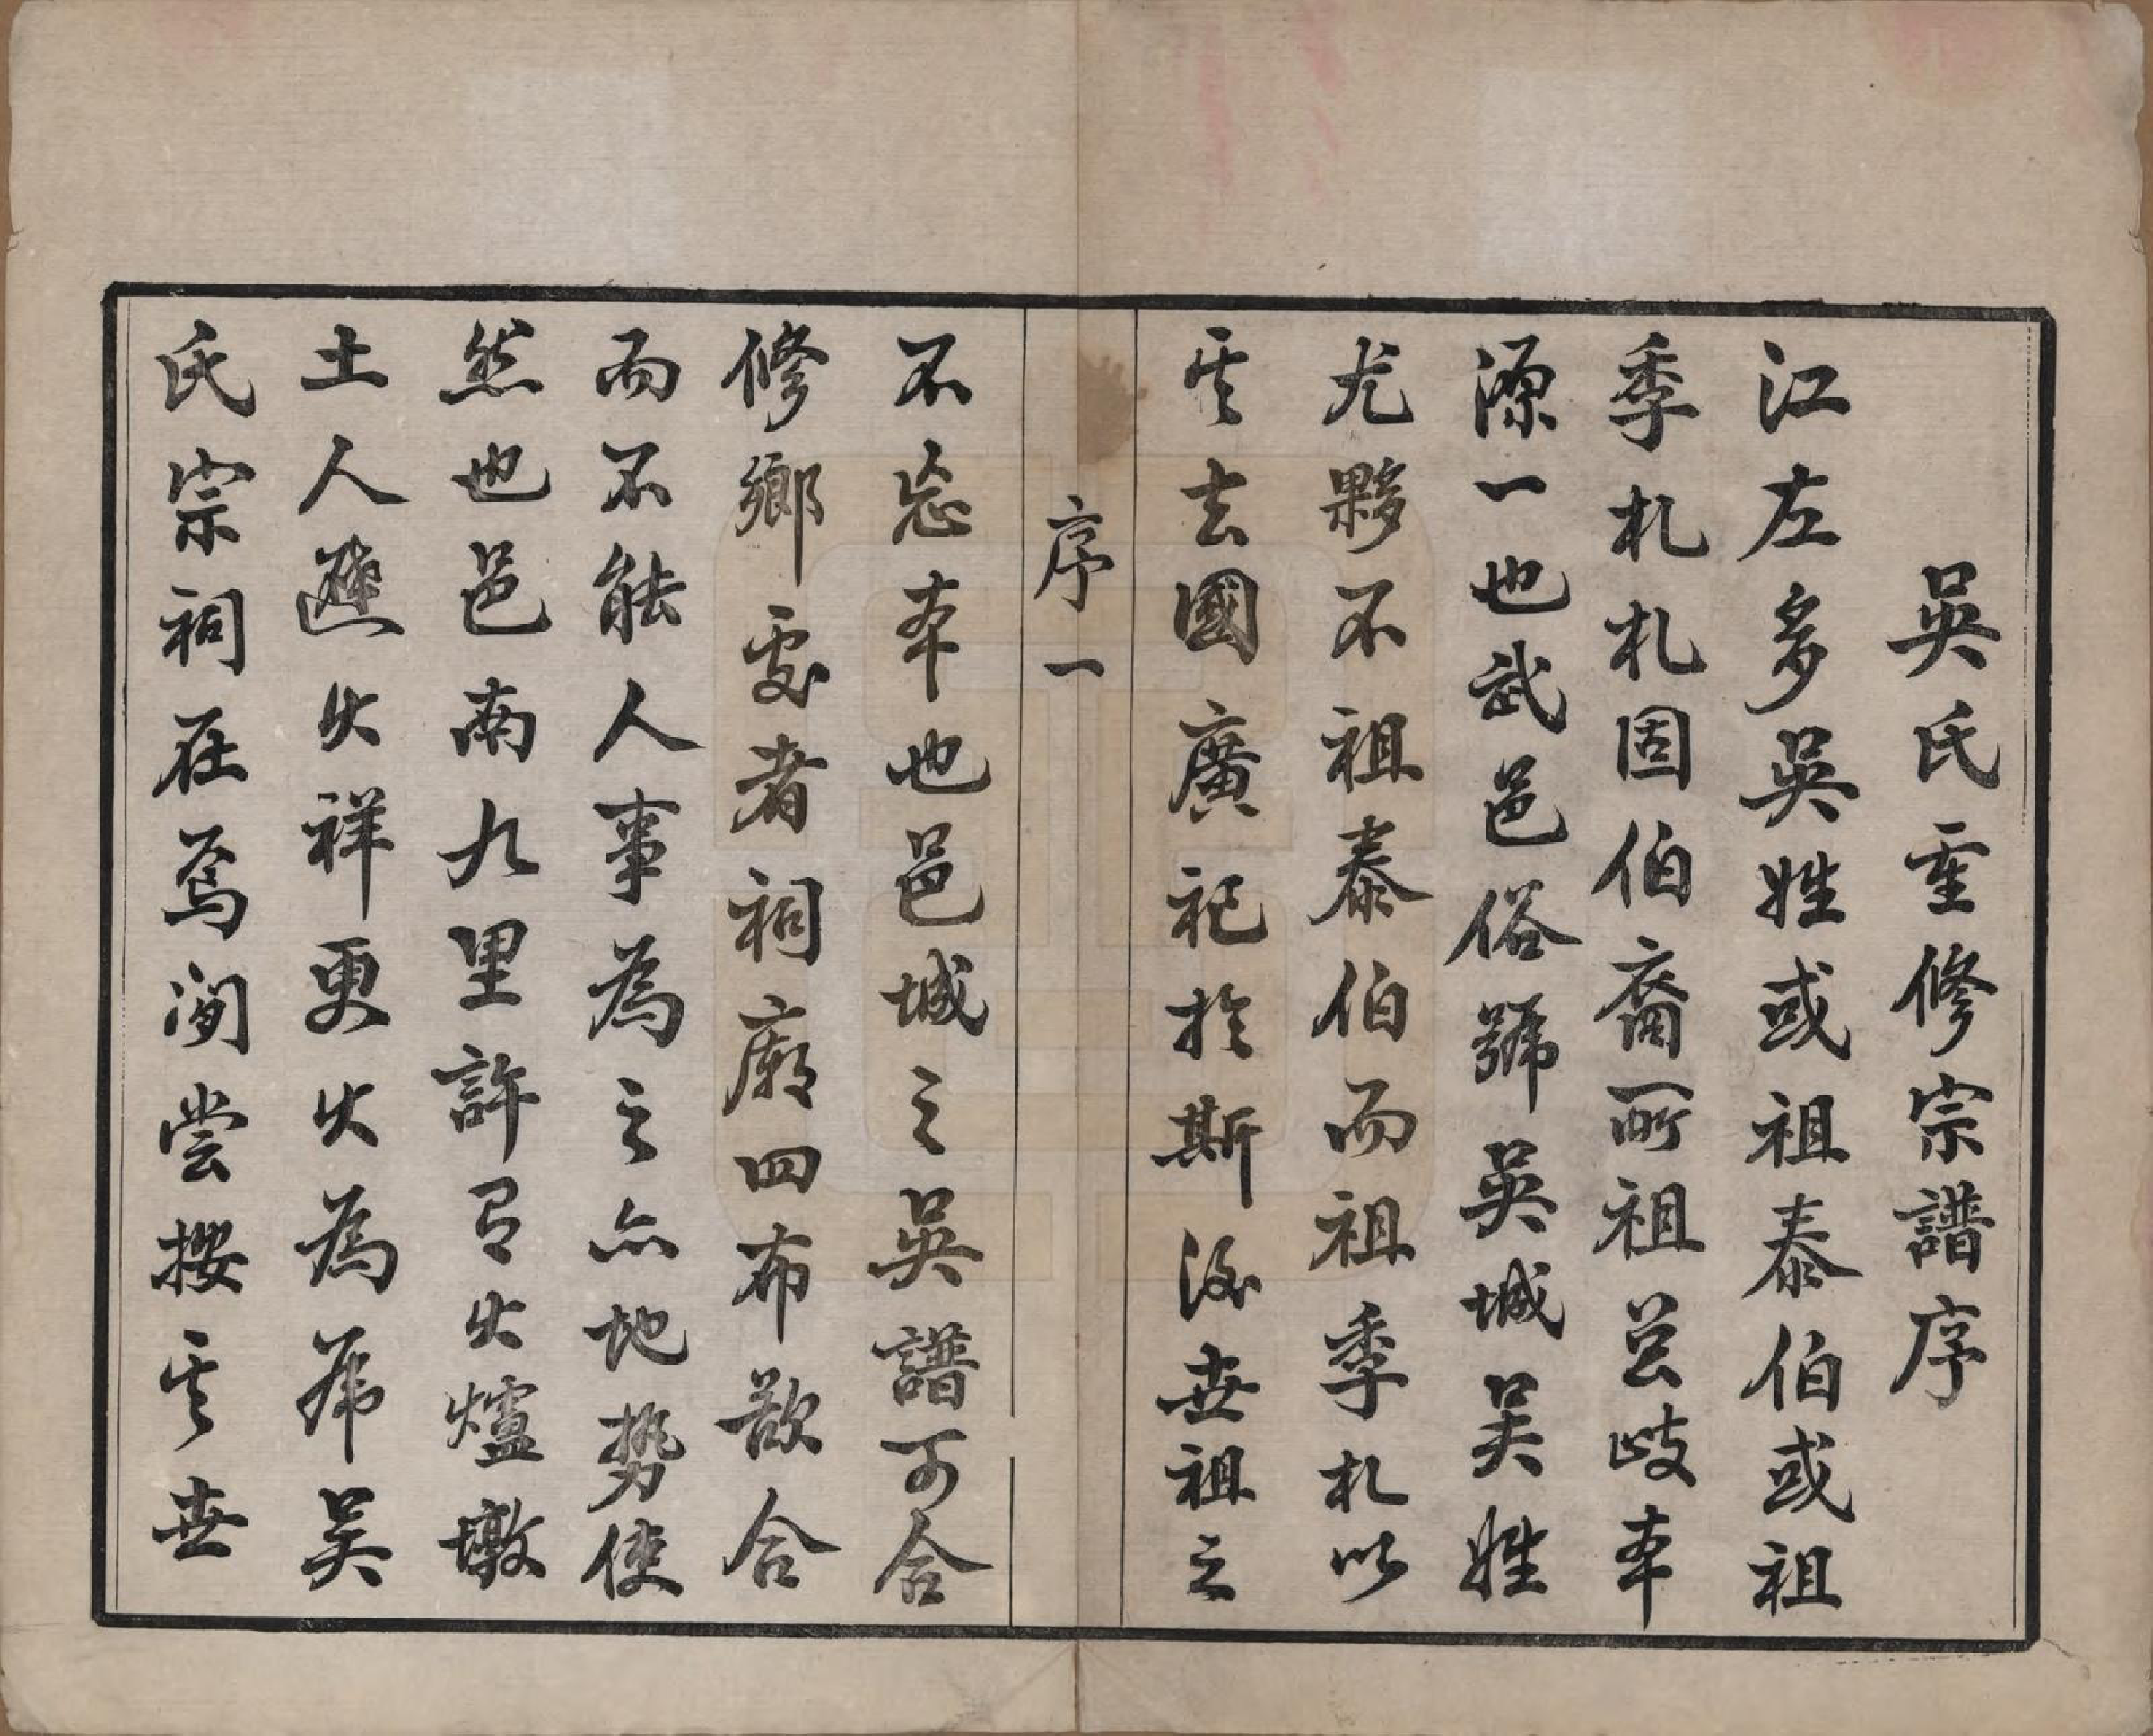 吳氏重修宗譜序
江左多吳姓或祖泰伯或祖
季札札固伯裔所祖岂歧本
源一也武邑俗號吳城吴姓
尤夥不祖泰伯而祖季札以
其去國廣祀於斯後世祖之
序一
不忘本也邑城之吳譜可合
修鄉處者祠廟四布欲合
而不能人事為之亦地勢使
然也邑南九里許有火爐墩
土人避火祥更火為虎吴
氏宗祠在焉間嘗按其世